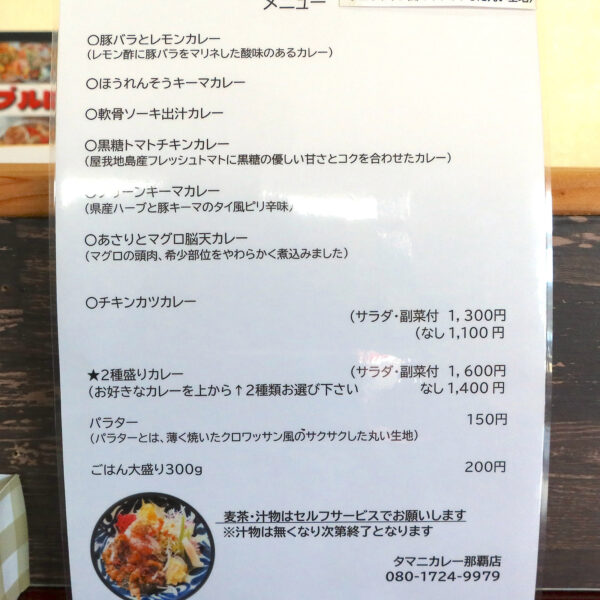 メニュー
〇豚バラとレモンカレー
（レモン酢に豚バラをマリネした酸味のあるカレー）
〇ほうれんそうキーマカレー
〇軟骨ソーキ出汁カレー
〇黒糖トマトチキンカレー
（屋我地島産フレッシュトマトに黒糖の優しい甘さとコクを合わせたカレー）
〇グリーンキーマカレー
（県産ハーブと豚キーマのタイ風ピリ辛味）
〇あさりとマグロ脳天カレー
（マグロの頭肉、希少部位をやわらかく煮込みました）
〇チキンカツカレー
（サラダ・副菜付 1,300円
（なし 1,100 円
★2種盛りカレー （サラダ・副菜付 1,600円
（お好きなカレーを上から↑2種類お選び下さい なし 1,400 円
パラター 150円
（パラターとは、薄く焼いたクロワッサン風のサクサクした丸い生地）
ごはん大盛り300g 200円
麦茶・汁物はセルフサービスでお願いします
※汁物は無くなり次第終了となります
タマニカレー那覇店
080-1724-9979
ブル